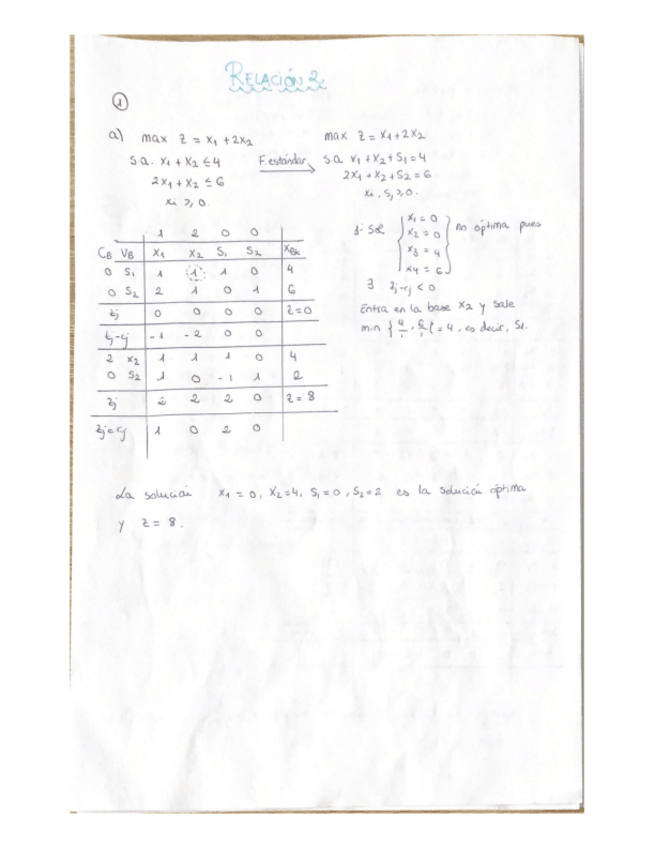 RELACIÓN 2
①
a) max z = x₁ + 2x₂
s.a. x₁ + x₂ ≤ 4
2x₁ + x₂ ≤ 6
xᵢ ≥ 0.
F. estándar →
max z = x₁ + 2x₂
s.a x₁ + x₂ + S₁ = 4
2x₁ + x₂ + S₂ = 6
xᵢ, Sⱼ ≥ 0.
1 2 0 0
C_B V_B x₁ x₂ S₁ S₂
0 S₁ 1 1 1 0 4
0 S₂ 2 1 0 1 6
zj 0 0 0 0 z=0
zj-cj -1 -2 0 0
2 x₂ 1 1 1 0 4
0 S₂ 1 0 -1 1 2
zj 2 2 2 0 z=8
zj-cj 1 0 2 0
1- Sol { x₁ = 0
x₂ = 0
x₃ = 4
x₄ = 6 } no óptima pues
∃ zj-cj < 0
Entra en la base x₂ y sale
min { 4/1, 6/1 } = 4, es decir, S₁.
La solución x₁ = 0, x₂=4, S₁=0, S₂=2 es la solución óptima
y z = 8.